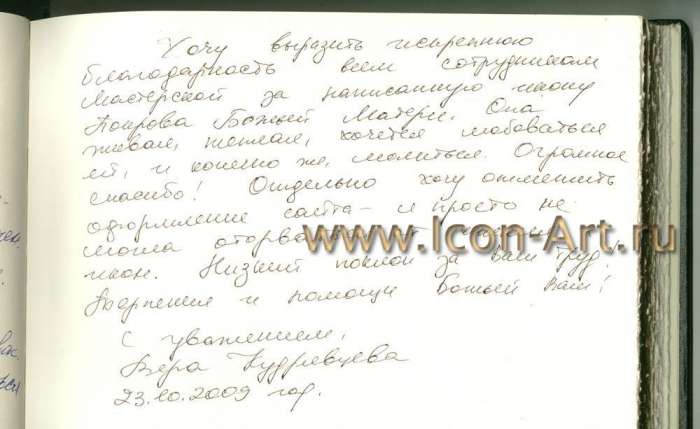 Хочу выразить искреннюю
благодарность всем сотрудникам
Мастерской за написанную икону
Покрова Божьей Матери. Она
живая, теплая, хочется любоваться
ей, и конечно же, молиться. Огромное
спасибо! Отдельно хочу отметить
оформление сайта - я просто не
могла оторваться от
www.Icon-Art.ru
икон. Низкий поклон за Ваш труд!
терпения и помощи Божьей Вам!
С уважением,
Вера Кудрявцева
23.10.2009 год.